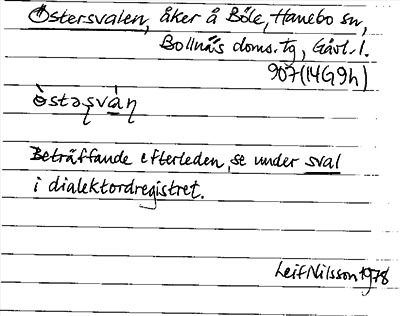 Östersvalen, åker å Böle, Hanebo sn,
Bollnäs doms. tg, Gävl. l.
907 (14G9h)
òstəʂvàɳ
Beträffande efterleden, se under sval
i dialektordregistret.
Leif Nilsson 1978